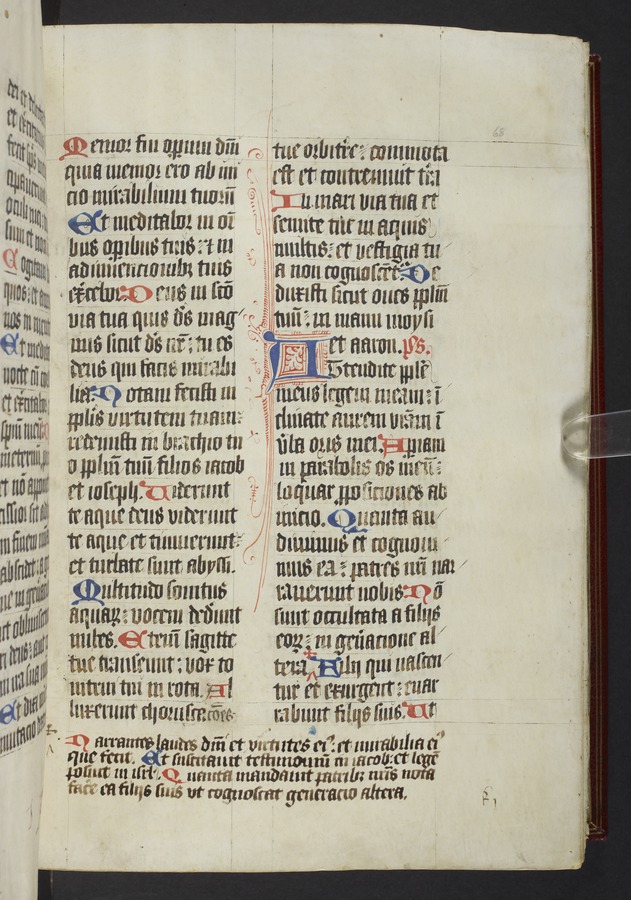 Memor fui operum dñi
quia memor ero ab ini
cio mirabilium tuorū
Et meditabor in oī
bus opibus tuis: et in
adinuencionibꝫ tuis
exercebor. Deus in scō
via tua quis ds mag
nus sicut ds nr̄: tu es
deus qui facis mirabi
lia. Notam fecisti in
pplis virtutem tuam:
redemisti in brachio tu
o pplm̄ tuū filios iacob
et ioseph. Viderunt
te aque deus viderunt
te aque et timuerunt:
et turbate sunt abyssi.
Multitudo sonitus
aquaꝝ: vocem dedunt
nubes. Etenī sagitte
tue transeunt: vox to
nitrui tui in rota. Al
luxerunt choruscacōes
tue orbi tre: commota
est et contremuit tra
In mari via tua et
semite tue in aquis
multis: et vestigia tu
a non cognoscēt. De
duxisti sicut oues pplm̄
tuū: in manu moysi
et aaron. ps.
Attendite pple
meus legem meam: ī
clinate aurem vram ī
vba oris mei. Aperiam
in parabolis os meū:
loquar pposiciones ab
inicio. Quanta au
diuimus et cognoui
mus ea: patres nri nar
rauerunt nobis. Nō
sunt occultata a filijs
eoꝝ: in generacione al
tera. Filij qui nascen
tur et exurgent: enar
rabunt filijs suis. Ut
Narrantes laudes dñi et virtutes eiꝰ: et mirabilia eiꝰ
que fecit. Et suscitauit testimonium in iacob: et legē
posuit in isrl. Quanta mandauit patribꝫ nris nota
face ea filijs suis vt cognoscat generacio altera.
68